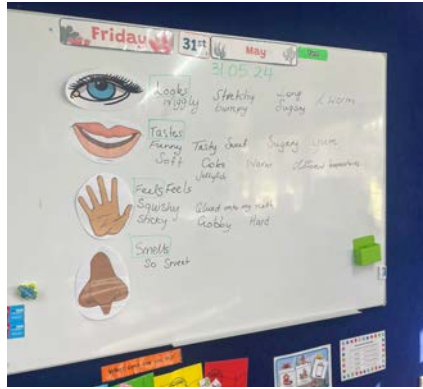 Friday 31st May
31.05.24
Looks Stretchy Long
wiggly bumpy Sugary
Tastes
Funny Tasty Sweet Sugary
Soft Coke Warm different
Jellyfish
Feels Feels
Squishy Glued onto my teeth
Sticky Gobby Hard
Smells
So Sweet